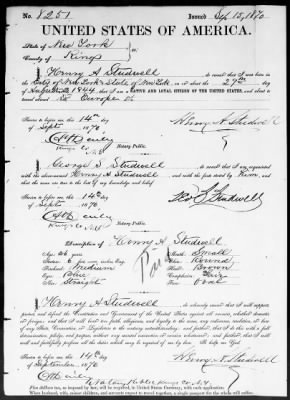 No. 8251 Issued Sep 15, 1870
UNITED STATES OF AMERICA.
State of New York
County of Kings
I, Henry A Studwell do swear that I was born in the
City of New York & State of New York, on or about the 27th day
of August 1844, that I am a NATIVE AND LOYAL CITIZEN OF THE UNITED STATES, and about
to travel to Europe
Sworn to before me, this 14th day
of Sept 1870
Henry A Studwell
Notary Public.
Kings Co. N.Y.
I, George S. Studwell do swear that I am acquainted
with the above-named Henry A Studwell and with the facts above stated by him, and that
the same are true to the best of my knowledge and belief.
Sworn to before me, this 14th day
of Sept 1870
Geo S Studwell
Notary Public.
Kings Co. N.Y.
Description of Henry A Studwell
Age: 26 years
Mouth: Small
Stature: feet inches, Eng.
Chin: Round
Forehead: Medium
Hair: Brown
Eyes: Blue
Complexion:
Nose: Straight
Face: Oval
Paid
I, Henry A Studwell do solemnly swear that I will support,
protect, and defend the Constitution and Government of the United States against all enemies, whether domestic
or foreign; and that I will bear true faith, allegiance, and loyalty to the same, any ordinance, resolution, or law
of any State, Convention, or Legislature to the contrary notwithstanding; and further, that I do this with a full
determination, pledge, and purpose, without any mental reservation or evasion whatsoever; and further, that I will
well and faithfully perform all the duties which may be required of me by law: So help me God.
Sworn to before me, this 14th
day of September 1870
Henry A Studwell
Notary Public Kings Co. N.Y.